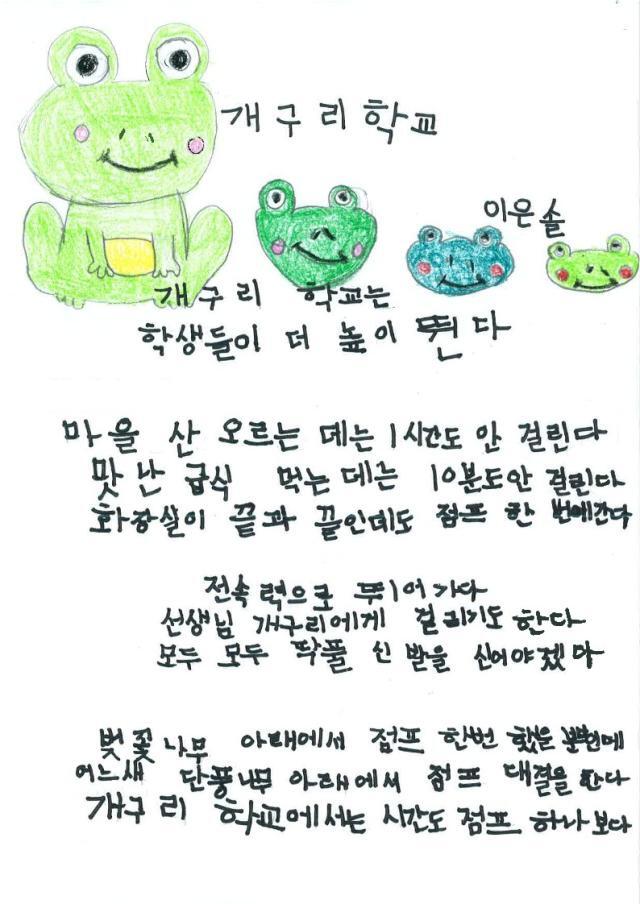 개구리학교
이은솔
개구리 학교는
학생들이 더 높이 뛴다
마을 산 오르는 데는 1시간도 안 걸린다
맛난 급식 먹는데는 10분도안 걸린다
화장실이 끝과 끝인데도 점프 한 번에간다
전속력으로 뛰어가다
선생님 개구리에게 걸리기도 한다
모두 모두 딱풀 신발을 신어야겠다
벚꽃나무 아래에서 점프 한번 했을 뿐인데
어느새 단풍나무 아래에서 점프 대결을 한다
개구리 학교에서는 시간도 점프 하나 보다